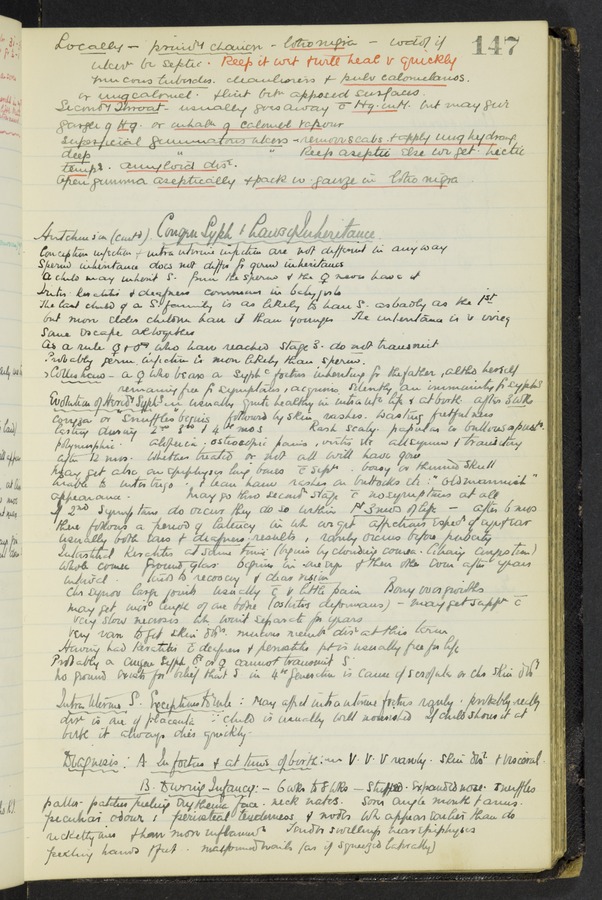 147
Locally – prim^y chancre – lotio nigra – iodof if
ulcer be septic. Keep it wet & will heal v quickly
mucous tubercles. cleanliness & pulv calomelanos.
or ung calomel. + lint bet^n apposed surfaces.
Second^y Throat – usually goes away c̄ Hg. int^y. but may give
gargle of Hg. or inhaln of calomel vapour
Superficial gummatous ulcers – remove scabs & apply ung hydrarg
deep " Keep aseptic else we get hectic
temp^r. amyloid dis^e.
Open gumma aseptically & pack w gauze in lotio nigra
Hutchinson (cont^d) Congen Syph & Laws of Inheritance
Conception infection & intrauterine infection are not different in any way
Sperm inheritance does not differ fr germ inheritance
A child may inherit S. from the sperm & the ♀ never have it
Inter. Keratitis & deafness commoner in
The last child of a S. family is as likely to have S. as badly as the 1st
but more older children have it than younger The inheritance is v
Some escape altogether
As a rule ♀ & ♂ who have reached stage 3. do not transmit
Probably germ infection is more likely than sperm.
Colles' Law – a ♀ who bears a Syph^c foetus inheriting fr the father, altho herself
remaining free fr symptoms, acquires silently an immunity fr Syphs
Evolution of Hered^y Syph^s. in usually quite healthy in intraut^e life & at birth. after 3 wks
coryza or "snuffles" begins followed by skin rashes. wasting fretfulness
lasting during 2nd 3rd & 4th mos Rash scaly. papular or bullous
polymorphic. alopecia; osteoscopic pains, iritis etc all symm & transitory
after 12 mos. whether treated or not all will have gone
May get also an epiphyses long bones c̄ supp^n. bossy or thinned skull
liable to intertrigo. & lean have rashes on buttocks etc: "old mannish"
appearance. May go thro second^y stage c̄ no symptoms at all
If 2nd symptoms do occur they do so within 1st 3 mos of life – after 6 mos
there follows a period of latency in wh we get affections esp^y of eye & ear
usually both eyes & deafness results, rarely occurs before puberty
Interstitial Keratitis at same time (begins by clouding cornea. ciliary congestion)
whole cornea ground glass begins in one eye & then other even after years
interval. tends to recovery & clear vision
Chr synov large joints usually c̄ v little pain Bony overgrowths
may get incr^d length of one bone (osteitis deformans) – may get supp^n c̄
very slow necrosis wh won't separate for years
Very rare to get skin dis^s. mucous memb^e dis^e at this term
Having had Keratitis c̄ deafness & periostitis pt is usually free for life
Probably a congen Syph ♂ or ♀ cannot transmit S
no ground exists for belief that S in 4th generation is cause of scrofula or chr skin dis^s
Intra Uterine S. Exceptions to rule: May affect intrauterine foetus rarely. probably really
dis^e is one of placenta. child is usually well nourished If child shows it at
birth it always dies quickly
Diagnosis: A. In foetus & at time of birth: – v. v. v rarely. skin dis^e & visceral.
B. During Infancy: – 6 wks to 8 wks – Stuffed. expanded nose. snuffles
pallor. patches peeling erythema face. neck nates. Sores angle mouth & anus.
peculiar odour; periosteal tenderness & nodes wh appear earlier than do
ricketty ones & are more inflamed Tender swellings near epiphyses
peeling hands & feet. malformed nails (as if squeezed laterally)